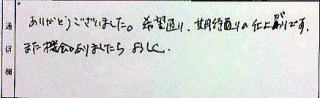 通信欄
ありがとうございました。希望通り、期待通りの仕上がりです。
また機会がありましたら よろしく.